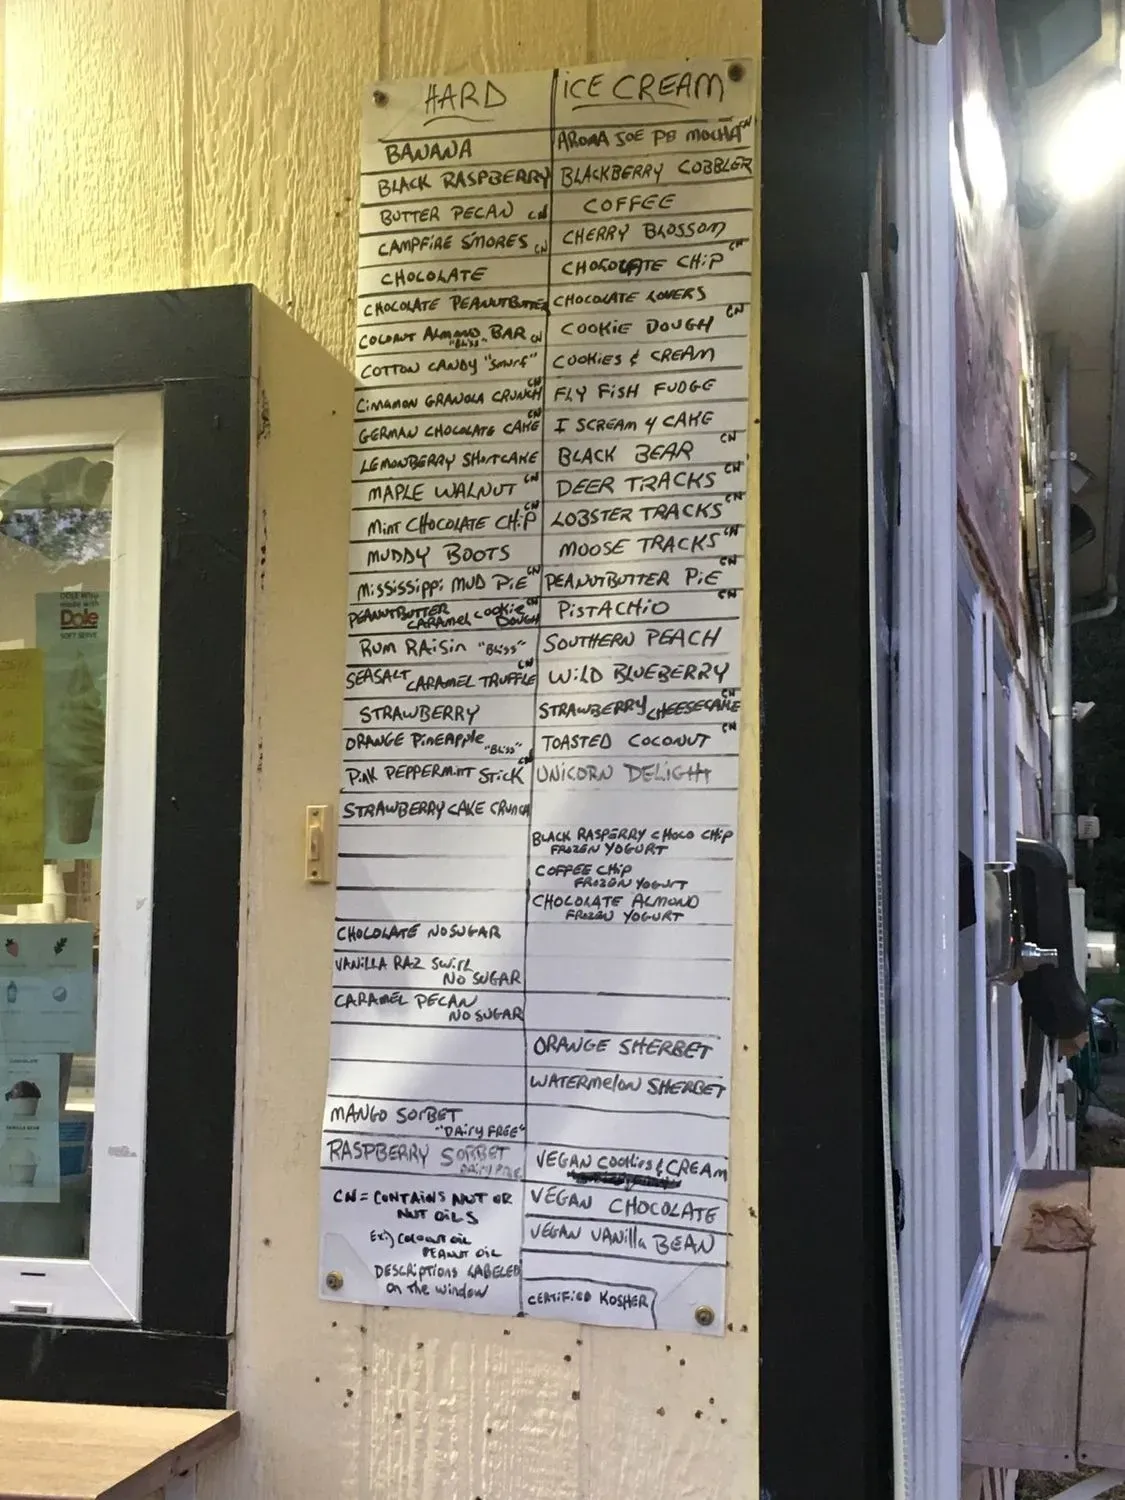 HARD ICE CREAM
BANANA
BLACK RASPBERRY
BUTTER PECAN CN
CAMPFIRE S'MORES CN
CHOCOLATE
CHOCOLATE PEANUTBUTTER
COCONUT ALMOND BAR CN
"BLISS"
COTTON CANDY "SMURF"
CINNAMON GRANOLA CRUNCH CN
GERMAN CHOCOLATE CAKE CN
LEMONBERRY SHORTCAKE
MAPLE WALNUT CN
MINT CHOCOLATE CHIP CN
MUDDY BOOTS
MISSISSIPPI MUD PIE CN
PEANUTBUTTER
CARAMEL COOKIE DOUGH CN
RUM RAISIN "BLISS"
SEASALT CARAMEL TRUFFLE CN
STRAWBERRY
ORANGE PINEAPPLE "BLISS"
PINK PEPPERMINT STICK CN
STRAWBERRY CAKE CRUNCH
CHOCOLATE NO SUGAR
VANILLA RAZ SWIRL
NO SUGAR
CARAMEL PECAN
NO SUGAR
MANGO SORBET
"DAIRY FREE"
RASPBERRY SORBET
DAIRY FREE
CN = CONTAINS NUT OR
NUT OILS
EX:) COCONUT OIL
PEANUT OIL
DESCRIPTIONS LABELED
on the window
AROMA JOE PB MOCHA CN
BLACKBERRY COBBLER
COFFEE
CHERRY BLOSSOM
CHOCOLATE CHIP CN
CHOCOLATE LOVERS
COOKIE DOUGH CN
COOKIES & CREAM
FLY FISH FUDGE
I SCREAM 4 CAKE
BLACK BEAR CN
DEER TRACKS CN
LOBSTER TRACKS CN
MOOSE TRACKS CN
PEANUTBUTTER PIE CN
PISTACHIO CN
SOUTHERN PEACH
WILD BLUEBERRY
STRAWBERRY CHEESECAKE CN
TOASTED COCONUT CN
UNICORN DELIGHT
BLACK RASPERRY CHOCO CHIP
FROZEN YOGURT
COFFEE CHIP
FROZEN YOGURT
CHOCOLATE ALMOND
FROZEN YOGURT
ORANGE SHERBET
WATERMELON SHERBET
VEGAN COOKIES & CREAM
VEGAN CHOCOLATE
VEGAN VANILLA BEAN
CERTIFIED KOSHER
made with
Dole
SOFT SERVE